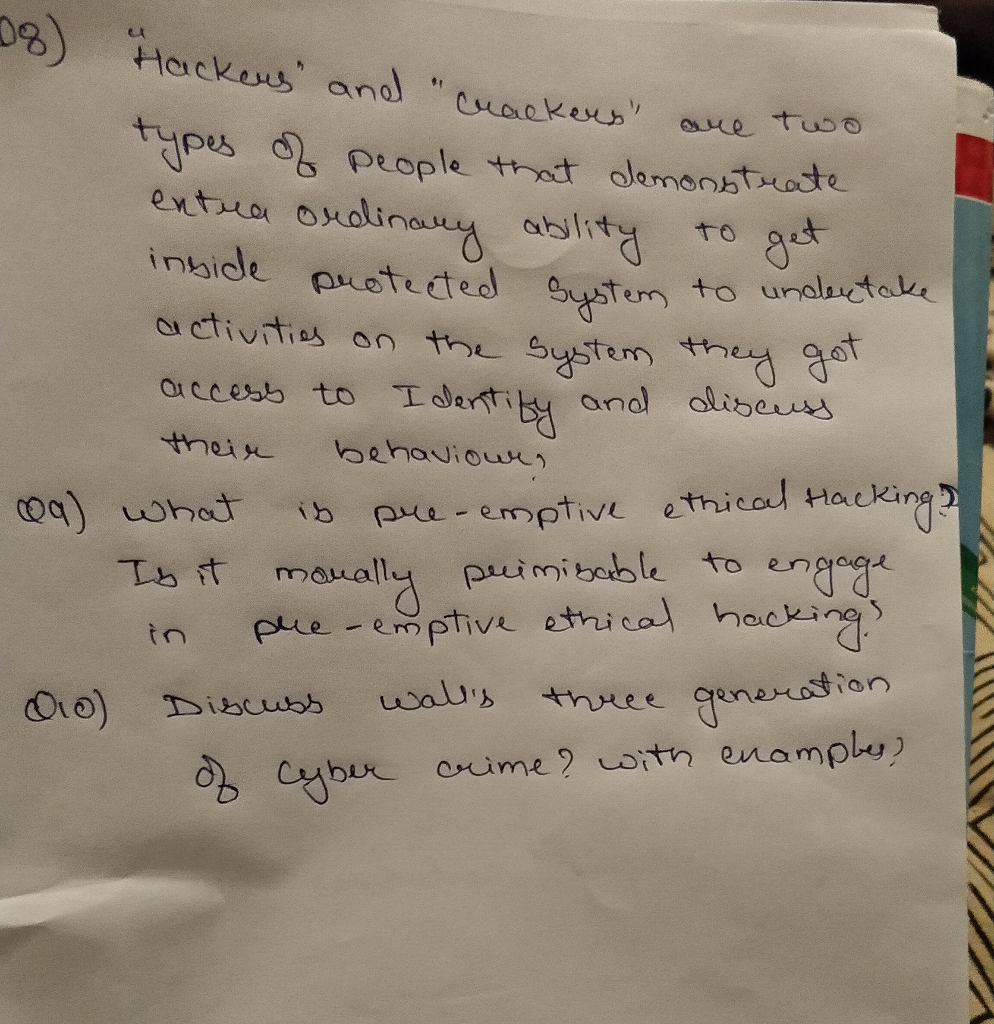 Q8) "Hackers" and "crackers" are two
types of people that demonstrate
extra ordinary ability to get
inside protected System to undertake
activities on the System they got
access to Identify and discuss
their behaviour?
Q9) what is pre-emptive ethical Hacking?
Is it morally primisable to engage
in pre-emptive ethical hacking?
Q10) Discuss wall's three generation
of cyber crime? with examples?